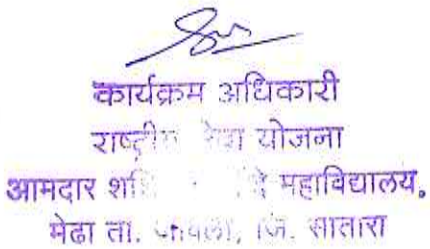 कार्यक्रम अधिकारी
राष्ट्रीय सेवा योजना
आमदार महाविद्यालय.
मेढा ता. जि. सातारा